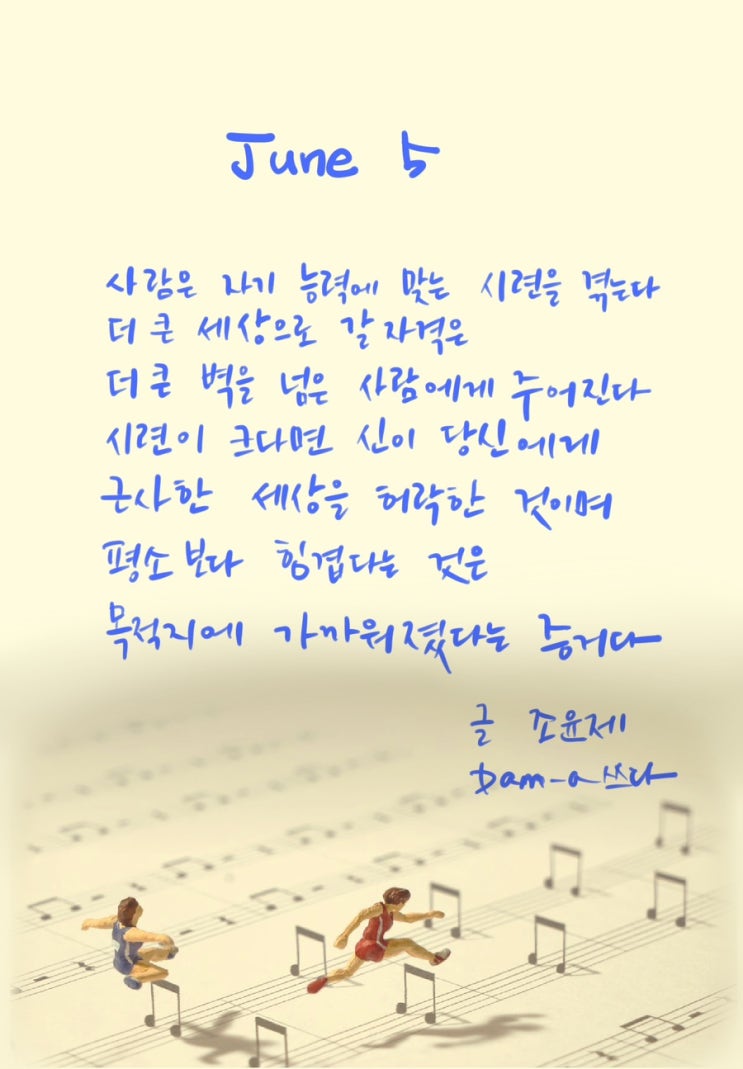 June 5
사람은 자기 능력에 맞는 시련을 겪는다
더 큰 세상으로 갈 자격은
더 큰 벽을 넘은 사람에게 주어진다
시련이 크다면 신이 당신에게
근사한 세상을 허락한 것이며
평소보다 힘겹다는 것은
목적지에 가까워졌다는 증거다
글 조윤제
Dam-a쓰다